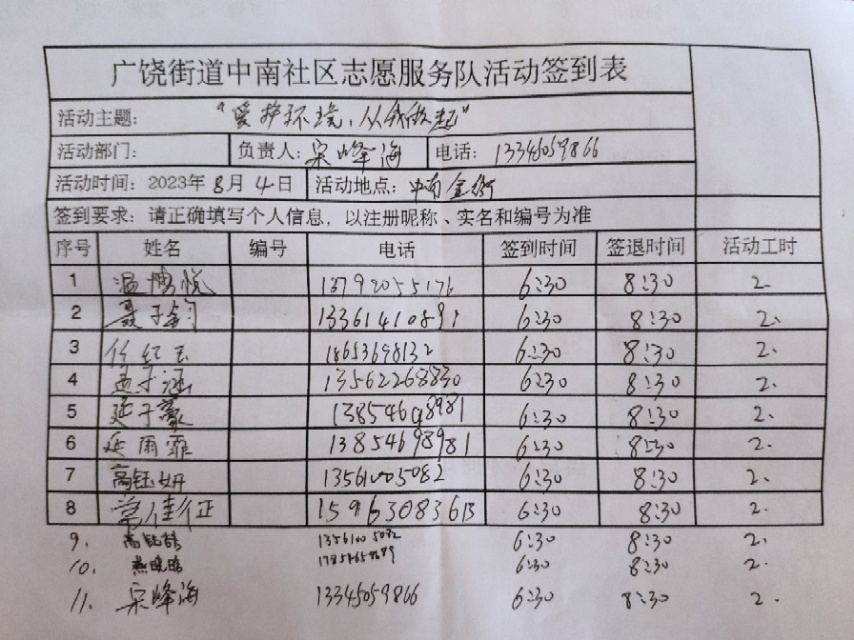 广饶街道中南社区志愿服务队活动签到表
活动主题: “爱护环境,从我做起”
活动部门: 负责人: 宋峰海 电话: 13345059866
活动时间: 2023年8月4日 活动地点: 中南金街
签到要求: 请正确填写个人信息,以注册昵称、实名和编号为准
序号 姓名 编号 电话 签到时间 签退时间 活动工时
1 温悦 13792055176 6:30 8:30 2.
2 聂子钧 13361410891 6:30 8:30 2.
3 任红玉 18653698132 6:30 8:30 2.
4 孟子涵 13562268830 6:30 8:30 2.
5 延子豪 13854698981 6:30 8:30 2.
6 延雨霏 13854698981 6:30 8:30 2.
7 高钰妍 13561005082 6:30 8:30 2.
8 常佳征 15963083613 6:30 8:30 2.
9. 高钰 13561005082 6:30 8:30 2.
10. 燕晓 6:30 8:30 2.
11. 宋峰海 13345059866 6:30 8:30 2.